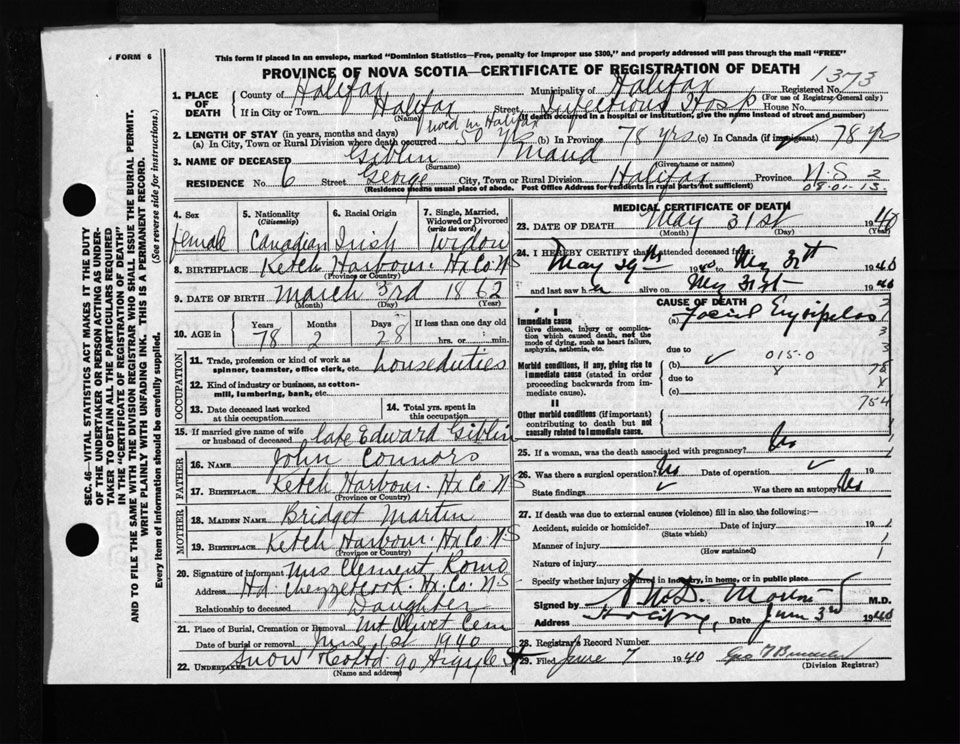 FORM 6
This form if placed in an envelope, marked "Dominion Statistics—Free, penalty for improper use $300," and properly addressed will pass through the mail "FREE"
PROVINCE OF NOVA SCOTIA—CERTIFICATE OF REGISTRATION OF DEATH
1373
SEC. 46—VITAL STATISTICS ACT MAKES IT THE DUTY
OF THE UNDERTAKER OR PERSON ACTING AS UNDER-
TAKER TO OBTAIN ALL THE PARTICULARS REQUIRED
IN THE "CERTIFICATE OF REGISTRATION OF DEATH"
AND TO FILE THE SAME WITH THE DIVISION REGISTRAR WHO SHALL ISSUE THE BURIAL PERMIT.
WRITE PLAINLY WITH UNFADING INK. THIS IS A PERMANENT RECORD.
Every item of information should be carefully supplied.
(See reverse side for instructions.)
1. PLACE OF DEATH
County of Halifax Municipality of Halifax Registered No.
(For use of Registrar General only)
If in City or Town Halifax Street Infectious Hosp House No.
(Name) (If death occurred in a hospital or institution, give the name instead of street and number)
lived in Halifax
2. LENGTH OF STAY (in years, months and days)
(a) In City, Town or Rural Division where death occurred 50 yrs (b) In Province 78 yrs (c) In Canada (if immigrant) 78 yrs
3. NAME OF DECEASED Giblin Maud
(Surname) (Given name or names)
RESIDENCE No. 6 Street George City, Town or Rural Division Halifax Province N.S. 2
(Residence means usual place of abode. Post Office Address for residents in rural parts not sufficient)
08-01-13
4. Sex
female
5. Nationality
(Citizenship)
Canadian
6. Racial Origin
Irish
7. Single, Married, Widowed or Divorced
(write the word)
Widow
8. BIRTHPLACE Ketch Harbour. Hx Co. N S
(Province or Country)
9. DATE OF BIRTH March 3rd 1862
(Month) (Day) (Year)
10. AGE in Years Months Days If less than one day old
78 2 28 hrs. or min.
OCCUPATION
11. Trade, profession or kind of work as spinner, teamster, office clerk, etc. houseduties
12. Kind of industry or business, as cotton-mill, lumbering, bank, etc.
13. Date deceased last worked at this occupation
14. Total yrs. spent in this occupation
15. If married give name of wife or husband of deceased late Edward Giblin
FATHER
16. NAME John Connors
17. BIRTHPLACE Ketch Harbour. Hx Co. N S
(Province or Country)
MOTHER
18. MAIDEN NAME Bridget Martin
19. BIRTHPLACE Ketch Harbour. Hx Co. N S
(Province or Country)
20. Signature of informant Mrs Clement Romo
Address Hd Chezzetcook. Hx. Co. N S
Relationship to deceased Daughter
21. Place of Burial, Cremation or Removal Mt Olivet Cem
Date of burial or removal June 1st 1940
22. UNDERTAKER Snow & Co Ltd 90 Argyle St
(Name and address)
MEDICAL CERTIFICATE OF DEATH
23. DATE OF DEATH May 31st 1940
(Month) (Day) (Year)
24. I HEREBY CERTIFY that I attended deceased from
May 29th 19 to May 31st 1940
and last saw h er alive on May 31st 1940
CAUSE OF DEATH
I
Immediate cause
Give disease, injury or complication which caused death, not the mode of dying, such as heart failure, asphyxia, asthenia, etc.
(a) Facial Erysipelas
due to
Morbid conditions, if any, giving rise to immediate cause (stated in order proceeding backwards from immediate cause).
(b) 015-0
due to
(c)
754
II
Other morbid conditions (if important) contributing to death but not causally related to immediate cause.
25. If a woman, was the death associated with pregnancy? No
26. Was there a surgical operation? No Date of operation 19
State findings Was there an autopsy? No
27. If death was due to external causes (violence) fill in also the following:—
Accident, suicide or homicide? Date of injury 19
(State which)
Manner of injury
(How sustained)
Nature of injury
Specify whether injury occurred in industry, in home, or in public place
Signed by M.D.
Address Halifax, Date June 3rd 1940
28. Registrar's Record Number
29. Filed June 7 1940
(Division Registrar)